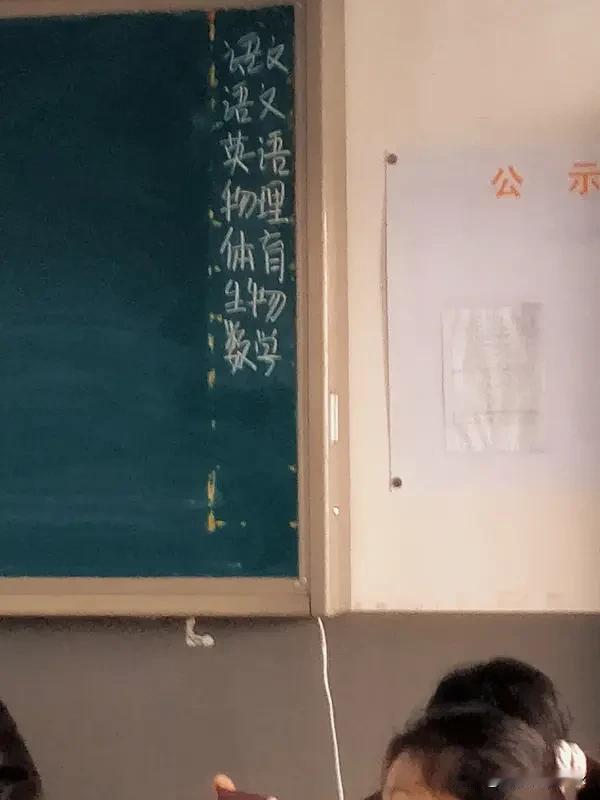 语文
语文
英语
物理
体育
生物
数学
公示